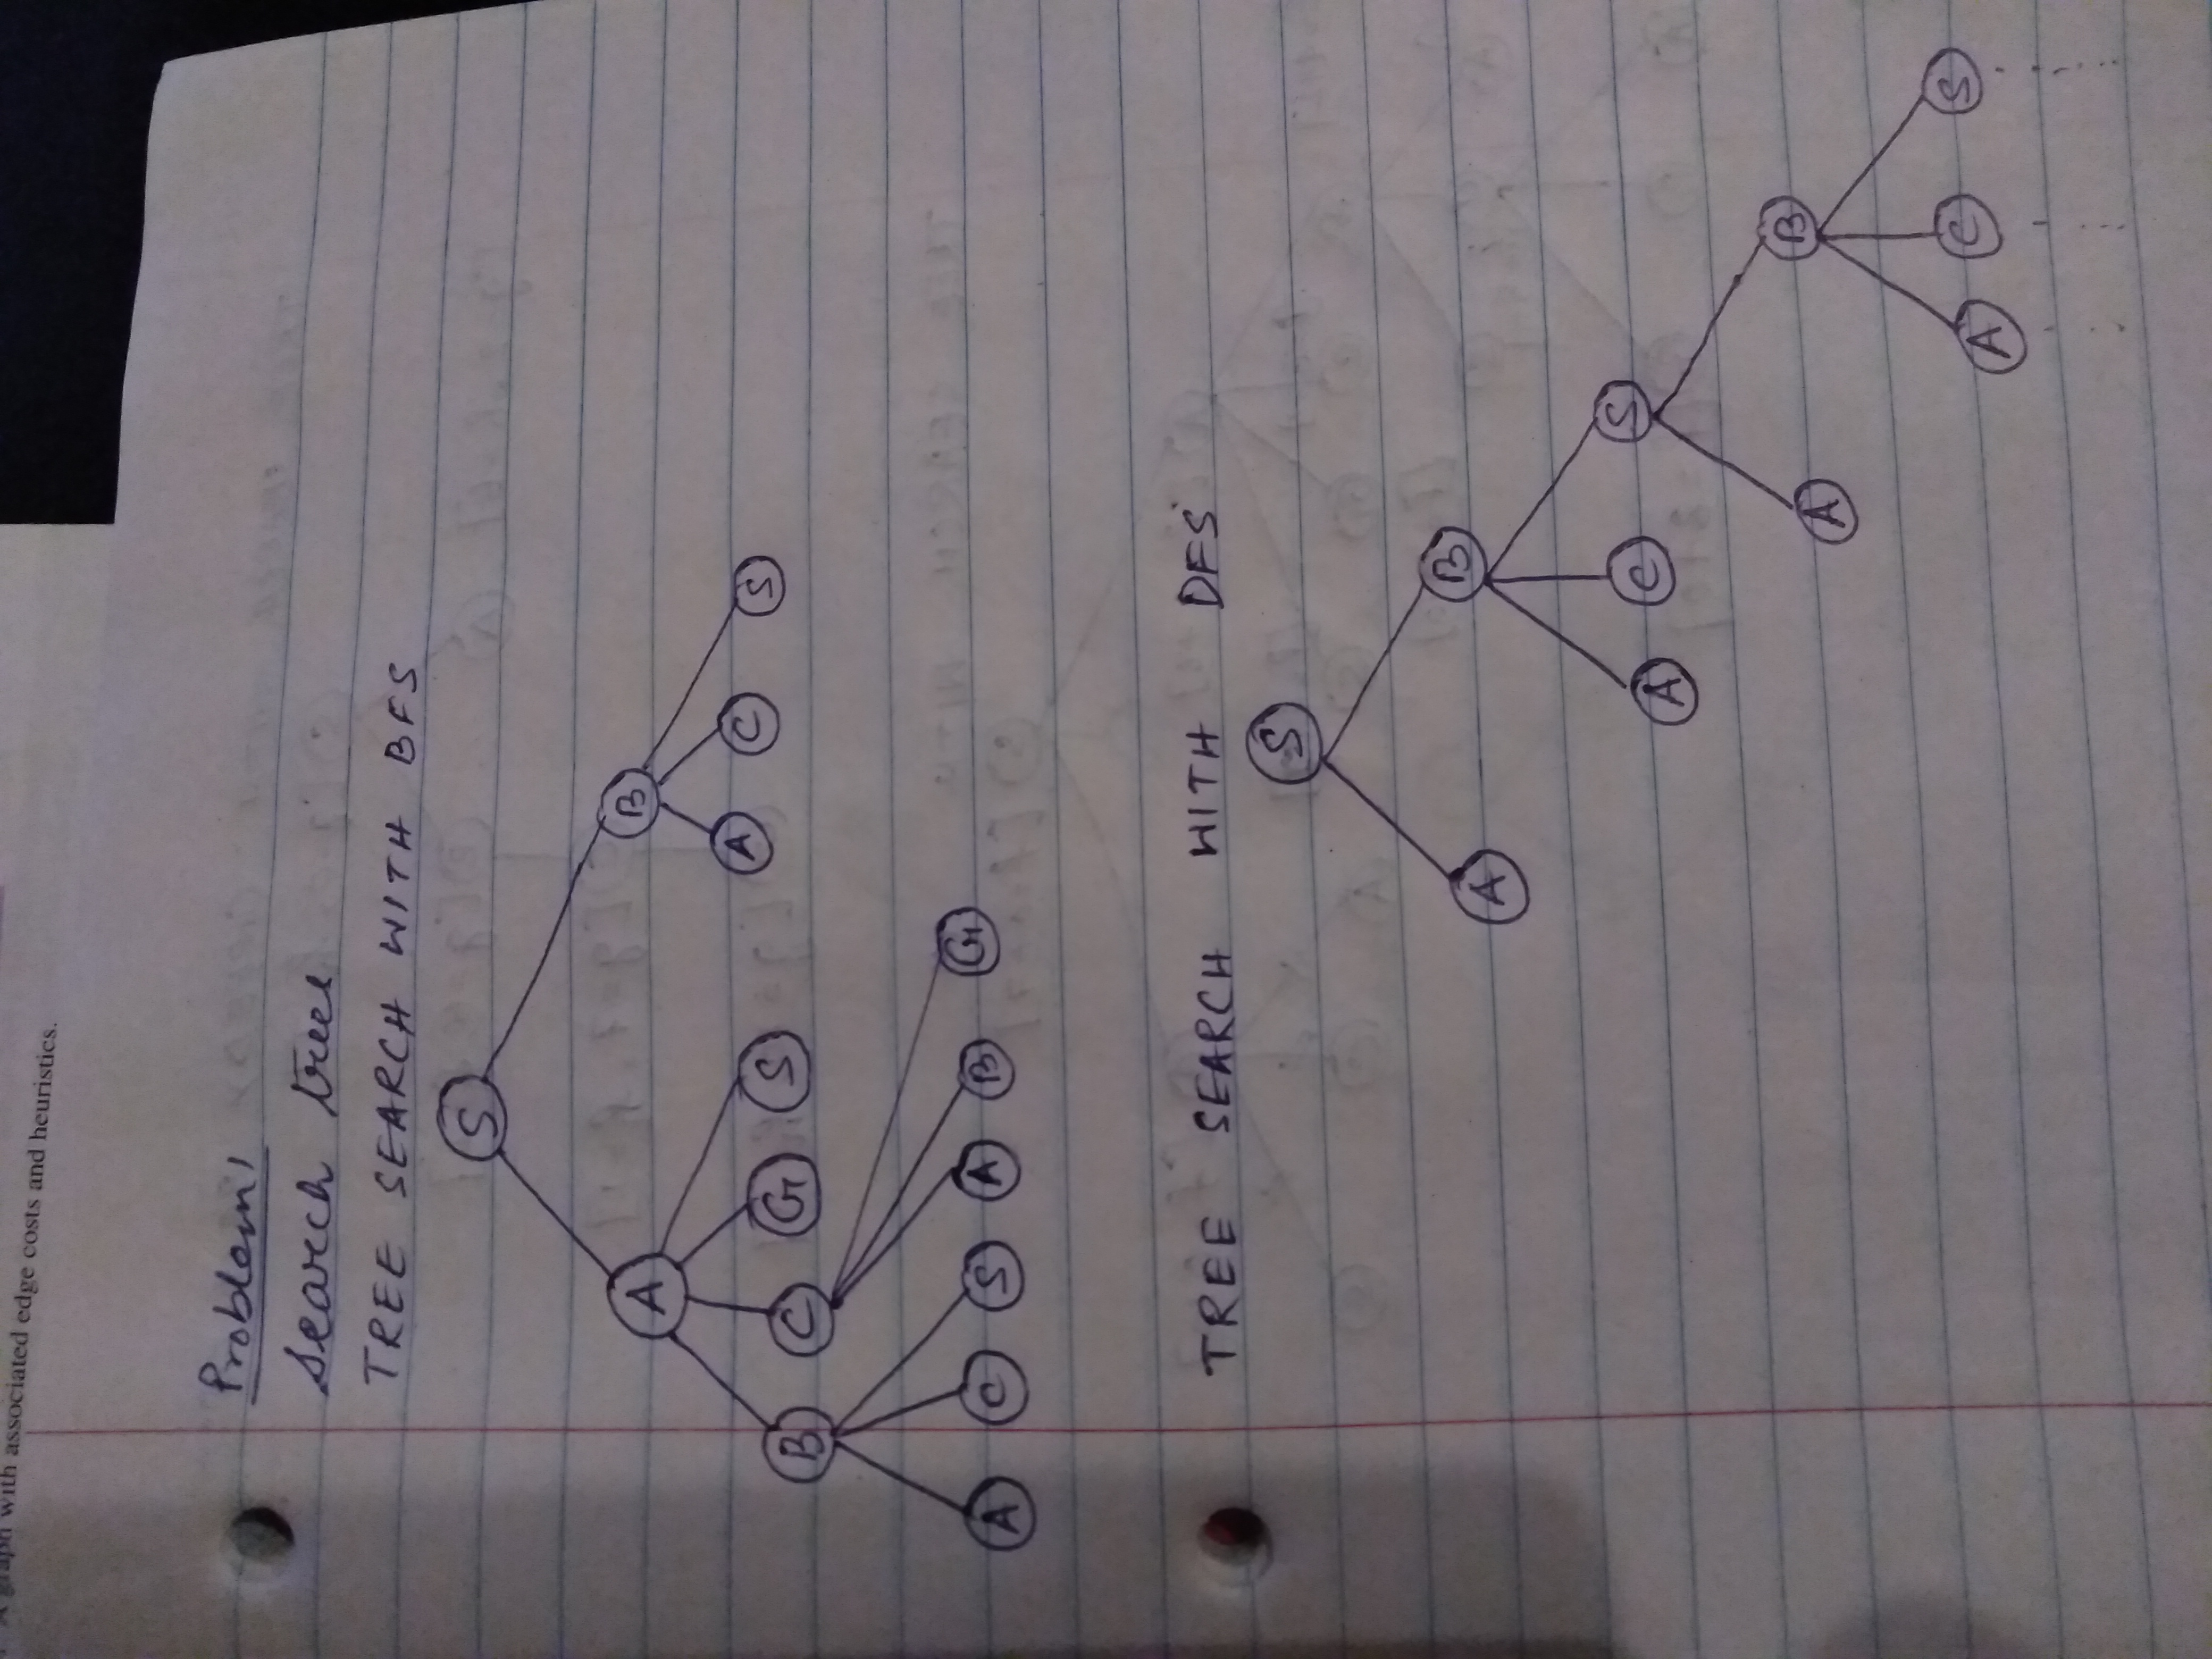 A graph with associated edge costs and heuristics.
Problem 1
Search tree
TREE SEARCH WITH BFS
S
A B
B C G S A C S
A C S A B G
TREE SEARCH WITH DFS
S
A B
A C S
A B
A C S